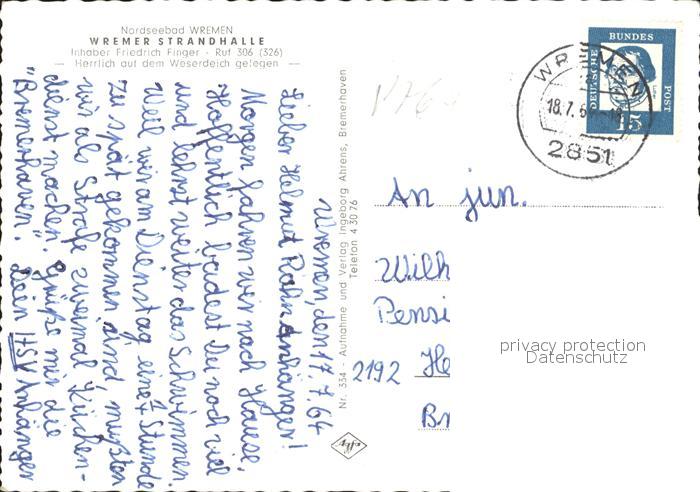 Nordseebad WREMEN
WREMER STRANDHALLE
Inhaber Friedrich Finger - Ruf 306 (326)
— Herrlich auf dem Weserdeich gelegen —
Wremen, den 17.7.64
Lieber Helmut Rahn Anhänger!
Morgen fahren wir nach Hause.
Hoffentlich badest Du noch viel
und lehrst weiter das Schwimmen.
Weil wir am Dienstag eine Stunde
zu spät gekommen sind, mußten
wir als Strafe zweimal Küchen-
dienst machen. Grüße mir die
"Bremerhaven". Dein HSV Anhänger
Nr. 334 - Aufnahme und Verlag Ingeborg Ahrens, Bremerhaven
Telefon 4 30 76
DEUTSCHE BUNDES POST
15
WREMEN
18.7.64
2851
An jun.
Wilh
Pensi
2192 He
Br
privacy protection
Datenschutz